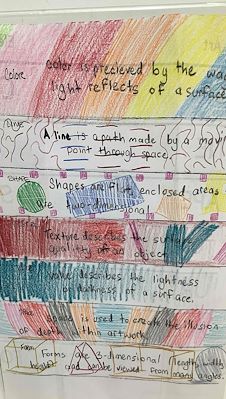 Color
color is precieved by the way
light reflects of a surface
Line
A line is a path made by a movi
point through space.
Shape
Shapes are flat, enclosed areas
are two-dimensional
Texture describes the surface
quality of an object
Value describes the lightness
or darkness of a surface.
Space is used to create the illusion
of depth thin artwork
Form
Forms are 3-dimensional (length, width,
height) and can be viewed from many angles.